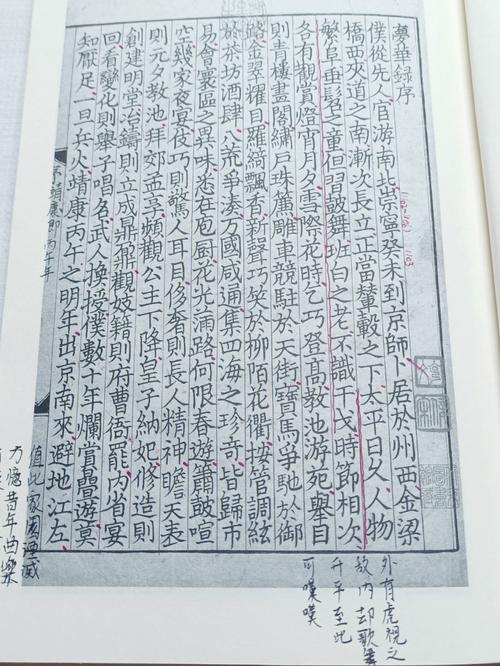 夢華録序
僕從先人官游南北崇寧癸未到京師卜居於州西金梁
橋西夾道之南漸次長立正當輦轂之下太平日久人物
繁阜垂髫之童但習鼓舞班白之老不識干戈時節相次
各有觀賞燈宵月夕雪際花時乞巧登高教池游苑舉目
則青樓畫閣繡戶珠簾雕車競駐於天街寶馬爭馳於御
路金翠耀日羅綺飄香新聲巧笑於柳陌花衢按管調絃
於茶坊酒肆八荒爭湊万國咸通集四海之珍奇皆歸市
易會寰區之異味悉在庖厨花光滿路何限春遊簫鼓喧
空幾家夜宴伎巧則驚人耳目侈奢則長人精神瞻天表
則元夕教池拜郊孟享頻觀公主下降皇子納妃修造則
創建明堂冶鑄則立成鼎鼐觀妓籍則府曹衙罷内省宴
回看變化則舉子唱名武人換授僕數十年爛賞疊遊莫
知厭足一旦兵火靖康丙午之明年出京南來避地江左
靖康即丙午年
外有虎視之
敌内却歌舞
升平至此
可嘆嘆
值此家国湮滅
方憶昔年曲樂